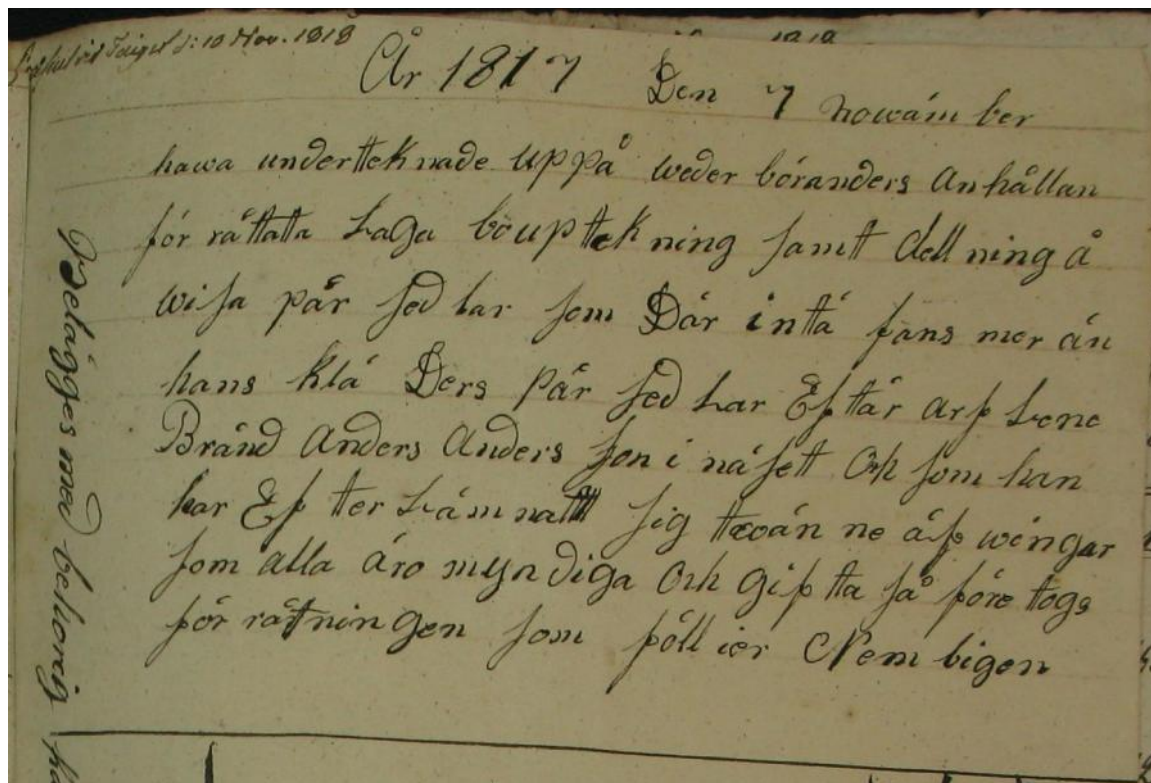 d: 10 Nov. 1818
År 1817 Den 7 nowämber
hawa undertteknade uppå wederböranders anhållan
för rättatta Laga bouppttekning samtt dellning å
wisa pär sedlar som Där inttä fans mer än
hans klä Ders pär sedLar Efttär arf Lene
Bränd Anders Anders son i näsett Och som han
har Efftter Lämnattt sig ttwänne äfwingar
som alla äro myndiga Och giftta så före togs
förrättningen som föllier Nembigen
Belägges med behörig